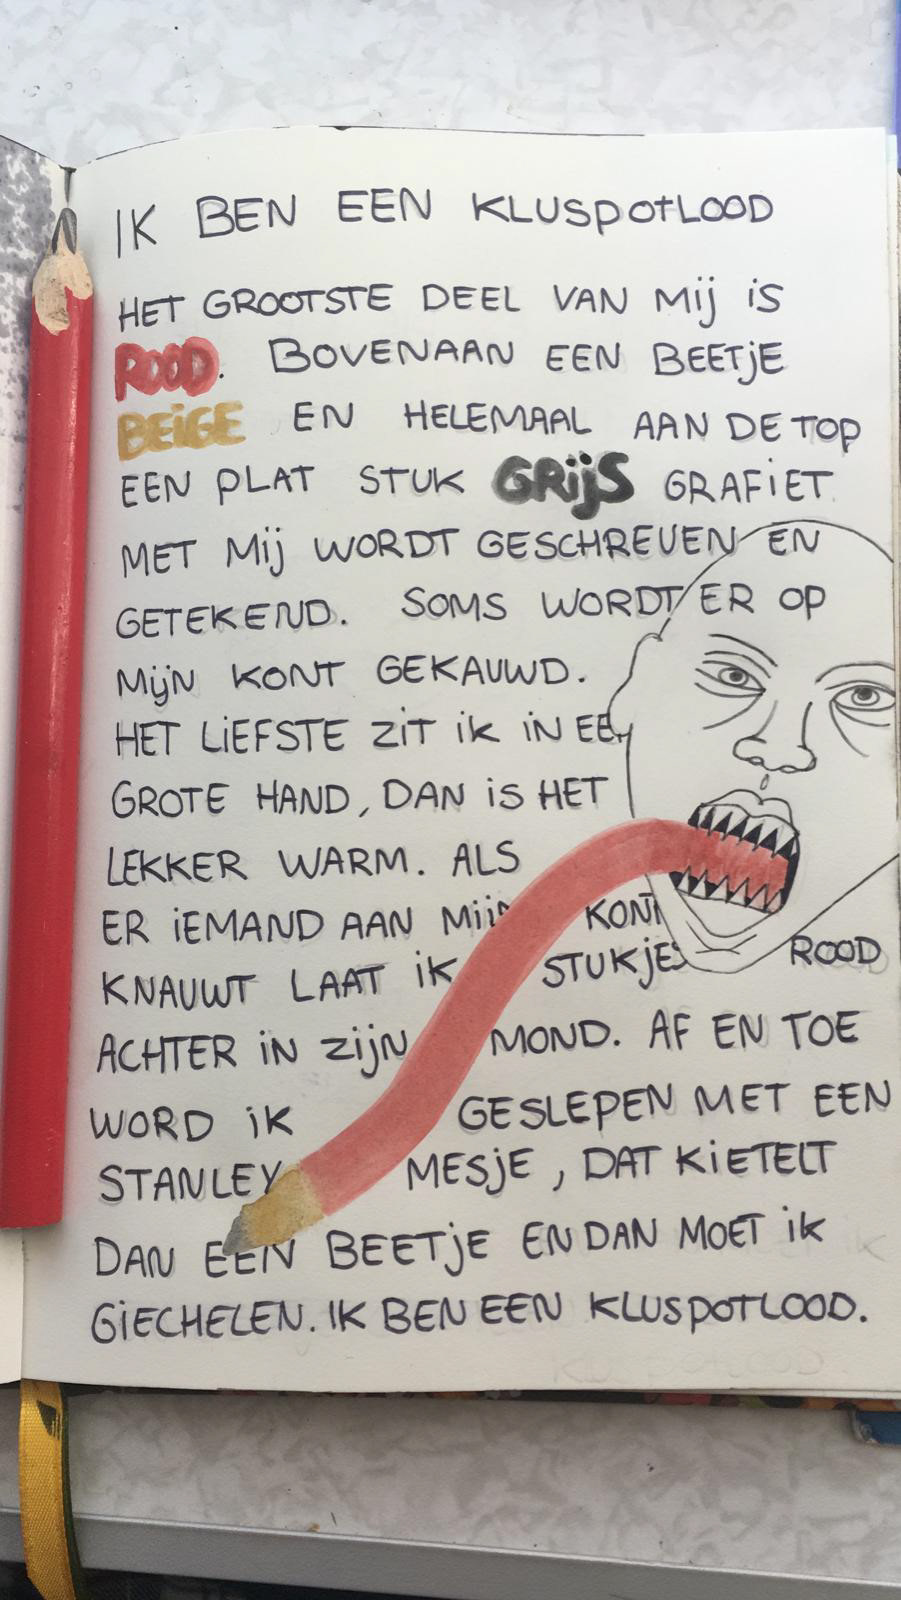 IK BEN EEN KLUSPOTLOOD
HET GROOTSTE DEEL VAN MIJ IS
ROOD. BOVENAAN EEN BEETJE
BEIGE EN HELEMAAL AAN DE TOP
EEN PLAT STUK GRIJS GRAFIET
MET MIJ WORDT GESCHREVEN EN
GETEKEND. SOMS WORDT ER OP
MIJN KONT GEKAUWD.
HET LIEFSTE ZIT IK IN
GROTE HAND, DAN IS HET
LEKKER WARM. ALS
ER IEMAND AAN MIJN KONT
KNAUWT LAAT IK STUKJES ROOD
ACHTER IN ZIJN MOND. AF EN TOE
WORD IK GESLEPEN MET EEN
STANLEY MESJE, DAT KIETELT
DAN EEN BEETJE EN DAN MOET IK
GIECHELEN. IK BEN EEN KLUSPOTLOOD.